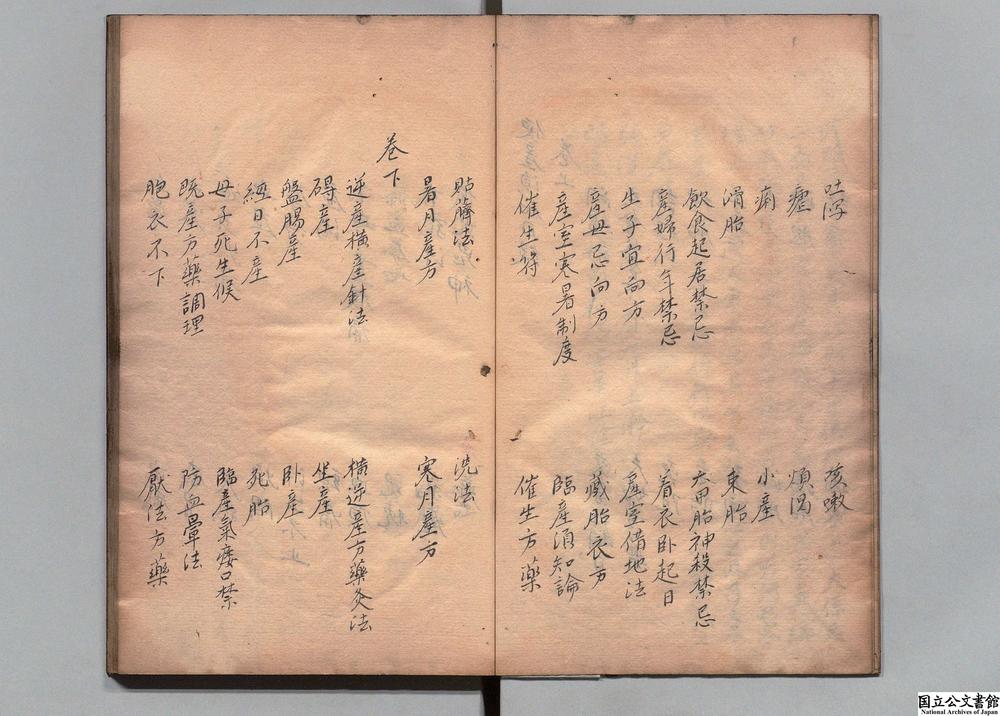 吐瀉 咳嗽
瘧 煩渇
痢 小産
滑胎 束胎
飲食起居禁忌 六甲胎神殺禁忌
産婦行年禁忌 着衣卧起日
生子宜向方 産室借地法
産母忌向方 藏胎衣方
産室寒暑制度 臨産須知論
催生符 催生方藥
貼臍法 洗法
暑月産方 寒月産方
卷下
逆産横産針法 横逆産方藥灸法
碍産 坐産
盤腸産 卧産
經日不産 死胎
母子死生候 臨産氣痿口禁
既産方藥調理 防血暈法
胞衣不下 厭法方藥
国立公文書館
National Archives of Japan